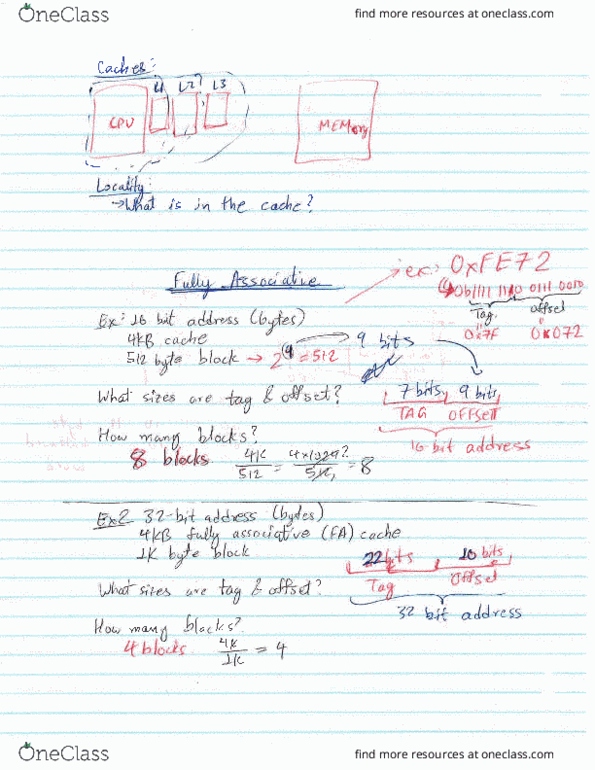 OneClass
find more resources at oneclass.com
Caches:
L1 L2 L3
CPU
MEMory
Locality:
→What is in the cache?
Fully Associative
ex: 0xFE72
0b1111 1110 0111 0010
Tag. offset
0x7F 0x072
Ex: 16 bit address (bytes)
4kB cache
512 byte block → 2^9 = 512
9 bits
What sizes are tag & offset?
7 bits 9 bits
TAG OFFSET
16-bit address
How many blocks?
8 blocks 4K/512 = 4×1024/512 = 8
Ex2 32-bit address (bytes)
4kB fully associative (FA) cache
1K byte block
22 bits 10 bits
Tag Offset
32 bit address
What sizes are tag & offset?
How many blocks?
4 blocks 4K/1K = 4
OneClass
find more resources at oneclass.com